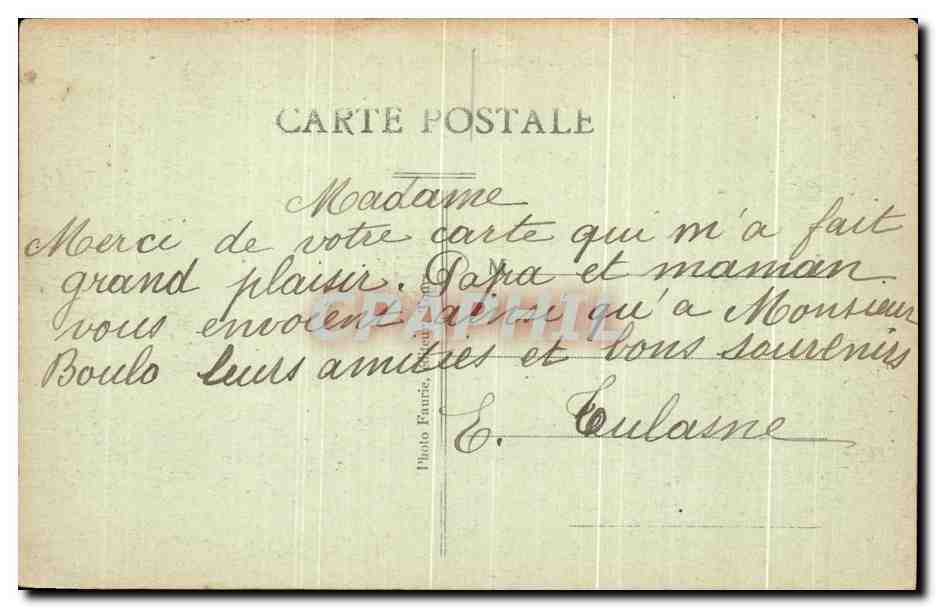 CARTE POSTALE
Madame
Merci de votre carte qui m'a fait
grand plaisir. Papa et maman
vous envoient ainsi qu'à Monsieur
Boulo leurs amitiés et bons souvenirs
E. Tulasne
M
CPAPHIL
Photo Faurie,